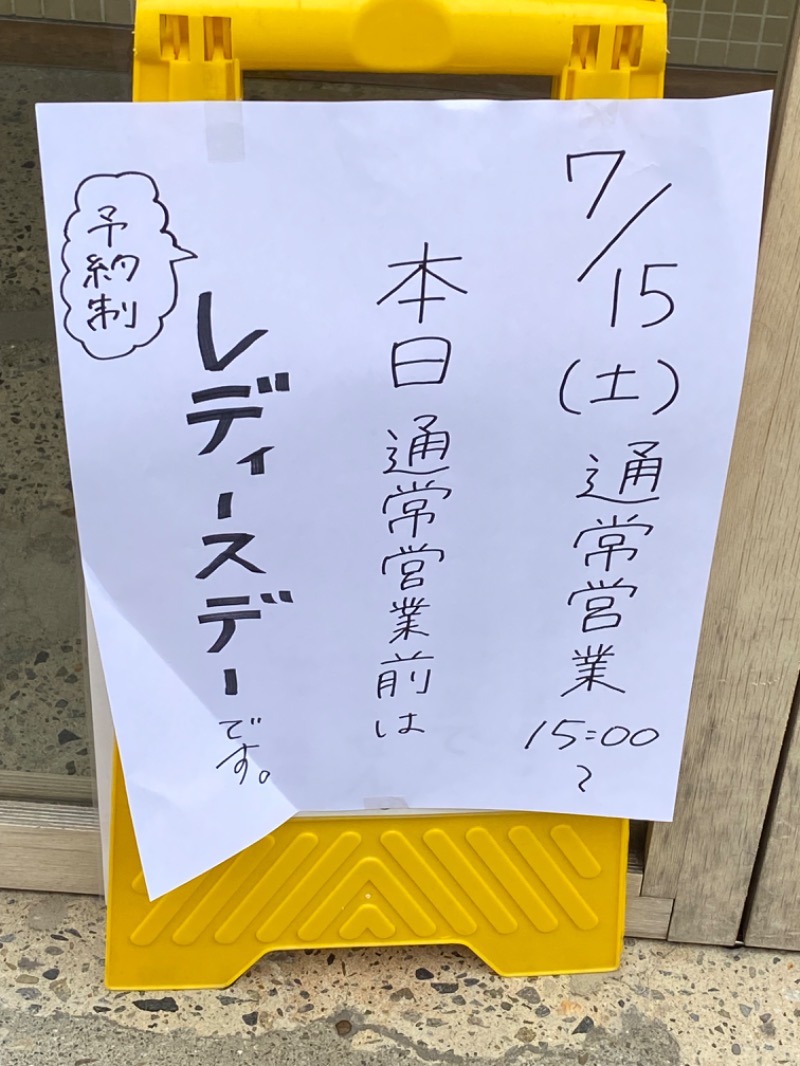 7/15(土)通常営業15:00〜
本日通常営業前は
レディースデーです。
予約制